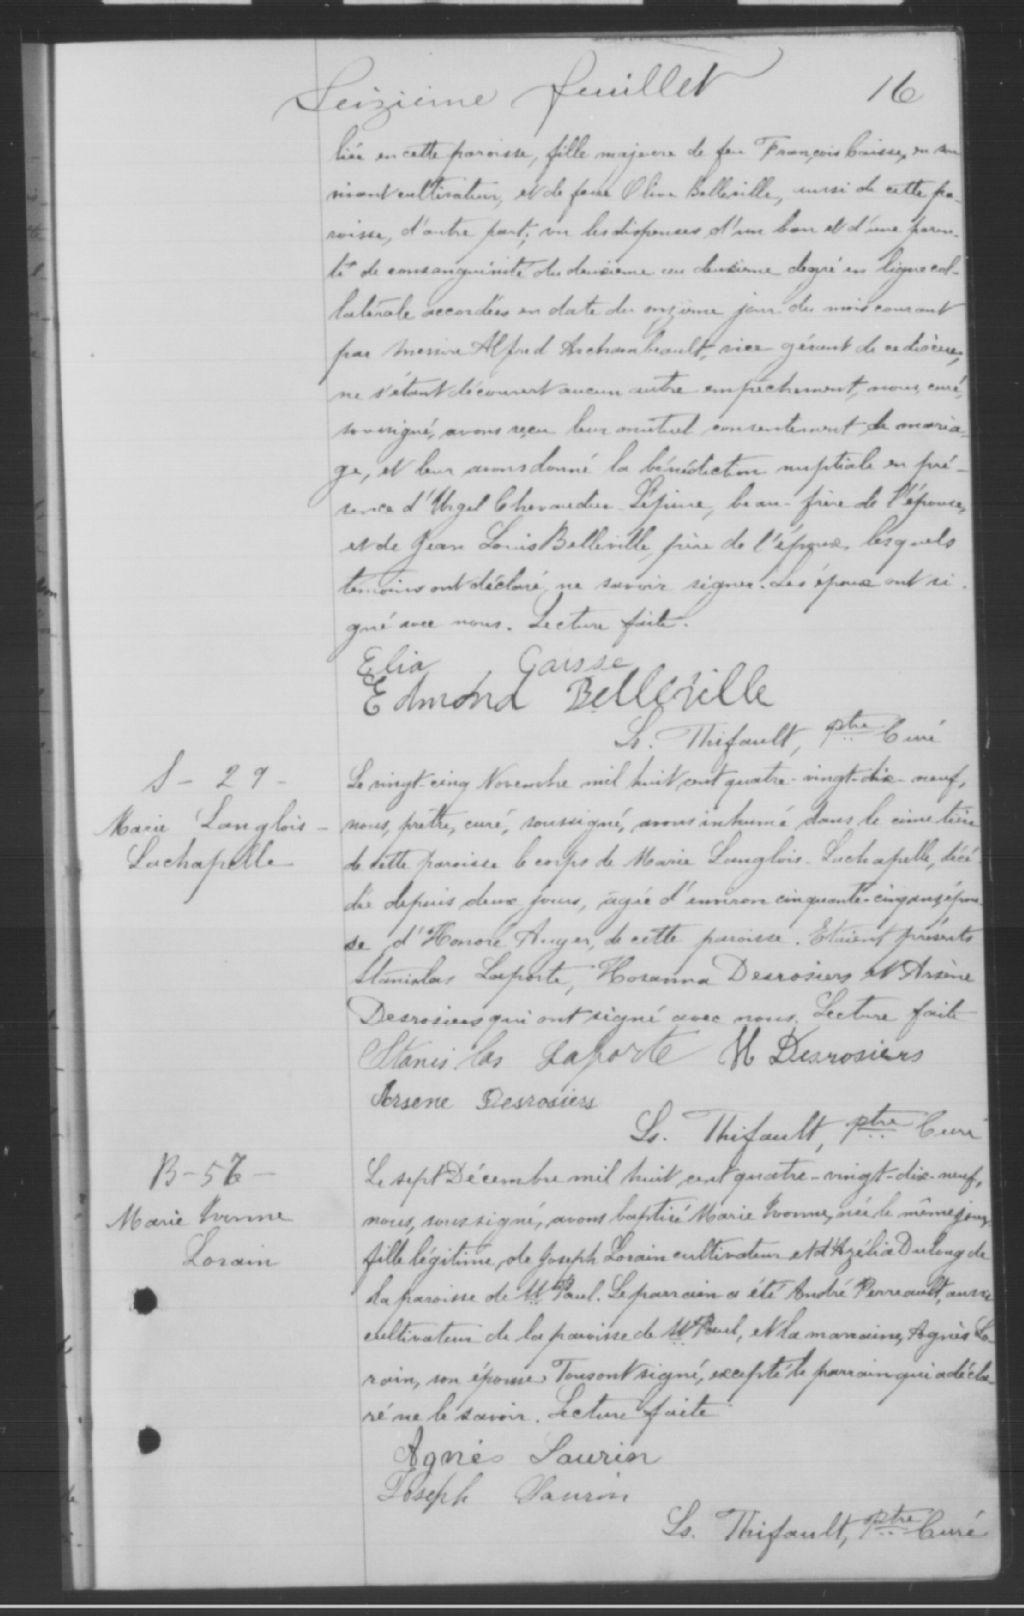 Seizième feuillet 16
liée en cette paroisse, fille majeure de feu François Caisse, en son
vivant cultivateur, et de feue Olive Belleville, aussi de cette pa-
roisse, d'autre part; vu les dispenses d'un ban et d'une paren-
té de consanguinité du deuxième au deuxième degré en ligne col-
latérale accordées en date du onzième jour du mois courant
par Messire Alfred Archambeault, vice gérant de ce diocèse,
ne s'étant découvert aucun autre empêchement, nous, curé,
soussigné, avons reçu leur mutuel consentement de maria-
ge, et leur avons donné la bénédiction nuptiale en pré-
sence d'Urgel Chevaudier Lépine, beau-frère de l'épouse,
et de Jean Louis Belleville, frère de l'époux, lesquels
témoins ont déclaré ne savoir signer. Les époux ont si-
gné avec nous. Lecture faite.
Elia Caisse
Edmond Belleville
Ls. Thifault, ptre Curé
S - 29 -
Marie Langlois -
Lachapelle
Le vingt-cinq Novembre mil huit cent quatre-vingt-dix-neuf,
nous, prêtre, curé, soussigné, avons inhumé dans le cimetière
de cette paroisse le corps de Marie Langlois-Lachapelle, décé-
dée depuis deux jours, âgée d'environ cinquante-cinq ans, épou-
se d'Honoré Auger, de cette paroisse. Etaient présents
Stanislas Laporte, Hosanna Desrosiers et Arsène
Desrosiers qui ont signé avec nous. Lecture faite
Stanislas Laporte H Desrosiers
Arsene Desrosiers
Ls. Thifault, ptre Curé
B - 56 -
Marie Ivonne
Lorain
Le sept Décembre mil huit cent quatre-vingt-dix-neuf,
nous, soussigné, avons baptisé Marie Ivonne, née le même jour,
fille légitime de Joseph Lorain cultivateur et d'Azélia Dulong de
la paroisse de St Paul. Le parrain a été André Perreault, aussi
cultivateur de la paroisse de St Paul, et la marraine, Agnès Lo-
rain, son épouse. Tous ont signé, excepté le parrain qui a décla-
ré ne le savoir. Lecture faite
Agnès Laurin
Joseph Laurin
Ls. Thifault, Ptre Curé